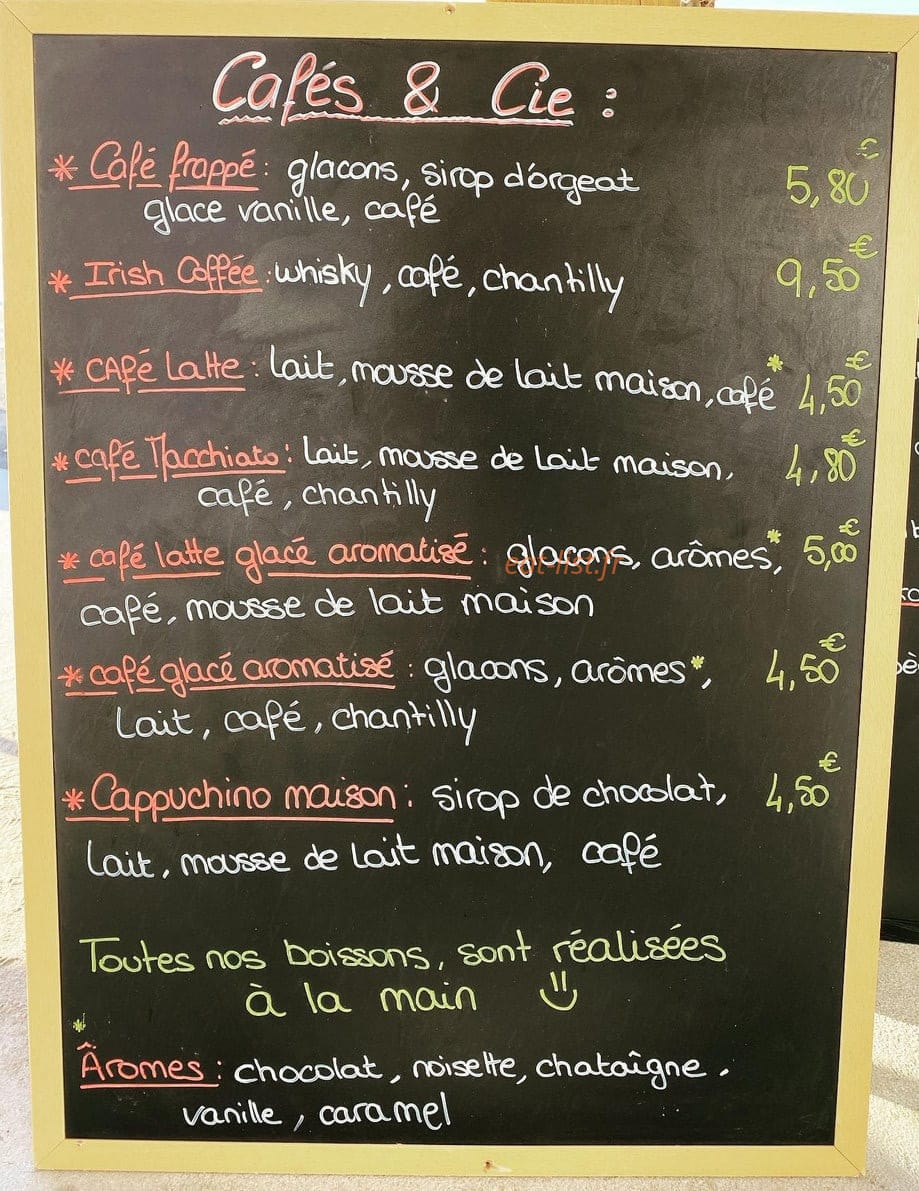 Cafés & Cie :
* Café frappé : glacons, sirop d'orgeat 5,80 €
glace vanille, café
* Irish Coffée : whisky, café, chantilly 9,50 €
* CAfé Latte : lait, mousse de lait maison, café * 4,50 €
* café Macchiato : lait, mousse de lait maison, 4,80 €
café, chantilly
* café latte glacé aromatisé : glacons, arômes*, 5,00 €
eat-list.fr
café, mousse de lait maison
* café glacé aromatisé : glacons, arômes*, 4,50 €
Lait, café, chantilly
* Cappuchino maison : sirop de chocolat, 4,50 €
Lait, mousse de lait maison, café
Toutes nos boissons, sont réalisées
à la main
*
Âromes : chocolat, noisette, chataîgne.
vanille, caramel